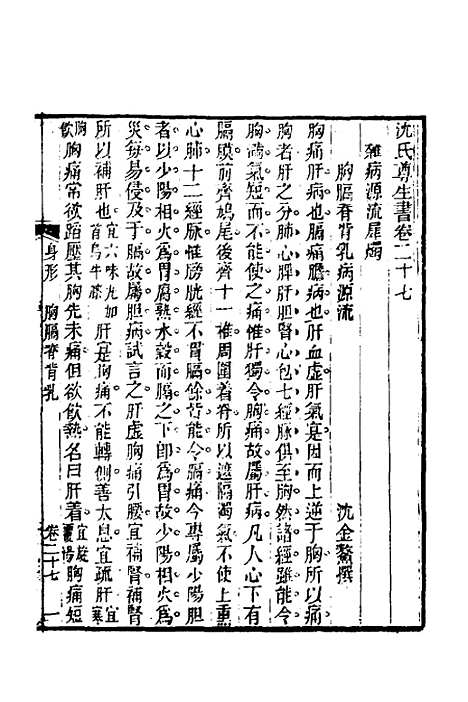 沈氏尊生書卷二十七
雜病源流犀燭
胸膈脊背乳病源流
沈金鰲撰
胸痛肝病也膈痛膽病也肝血虛肝氣實因而上逆于胸所以痛
胸者肝之分肺心脾肝膽腎心包七經脉俱至胸然諸經雖能令
胸滿氣短而不能使之痛惟肝獨令胸痛故屬肝病凡人心下有
膈膜前齊鳩尾後齊十一椎周圍着脊所以遮隔濁氣不使上熏
心肺十二經脉惟膀胱經不貫膈餘皆能令膈痛今專屬少陽膽
者以少陽相火爲胃府熱水穀而膈之下卽爲胃故少陽相火爲
災每易侵及于膈故屬胆病試言之肝虛胸痛引腰宜補腎補
所以補肝也宜六味丸加首烏牛膝肝實胸痛不能轉側善太息宜疏肝宜寒
胸飲胸痛常欲蹈壓其胸先未痛但欲飲熱名曰肝着宜旋覆湯胸痛短
身形
胸膈脊背乳
卷二十七
一